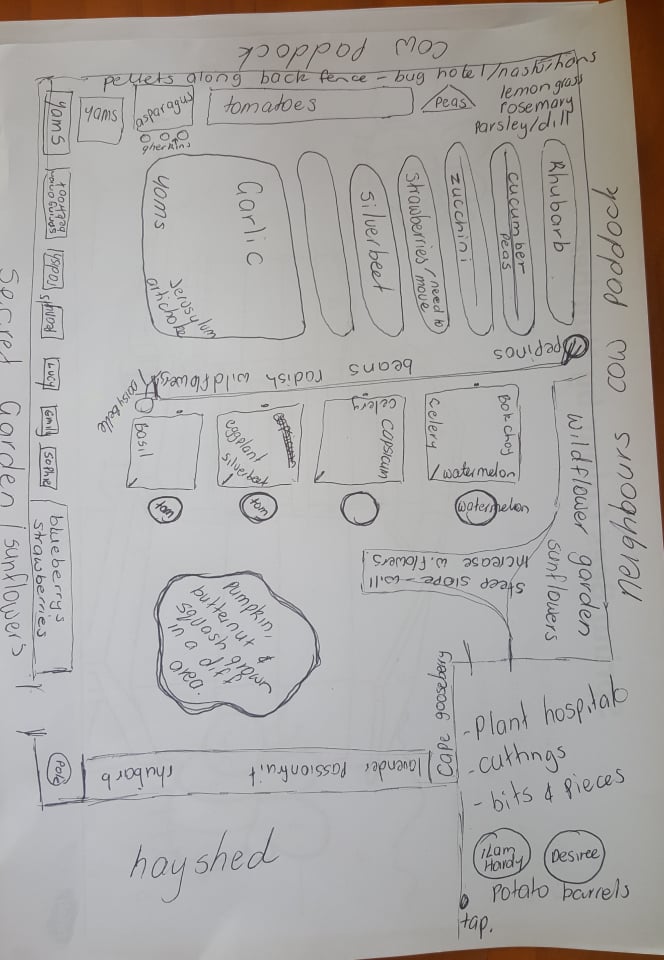 cow paddock
pellets along back fence - bug hotel/nashihans
lemongrass
rosemary
Parsley/dill
Peas
tomatoes
asparagus
gherkins
yams
yams
Rhubarb
cucumber
peas
zucchini
strawberries/need to
move
silverbeet
Garlic
yams
Jerusylum
artichoke
neighbours cow paddock
pepinos
beans radish wildflowers
daisybelle
Basil
eggplant
silverbeet
celery
capsicum
Bok choy
celery
watermelon
tom
tom
watermelon
wildflower garden
sunflowers
steep slope - will
increase w.flowers.
Pumpkin,
butternut &
squash grown
in a diff
area.
Lucy
Emily
Sophie
blueberrys
strawberries
Secret Garden /sunflowers
Cape gooseberry
lavender Passionfruit rhubarb
Pole
hayshed
- plant hospital
- cuttings
- bits & pieces
Ilam
Hardy
Desiree
Potato barrels
tap.